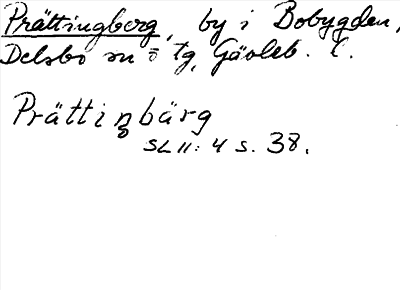 Prättingberg, by i Bobygden,
Delsbo sn o tg, Gävleb. l.
Prättinbärg
SL II: 4 s. 38.